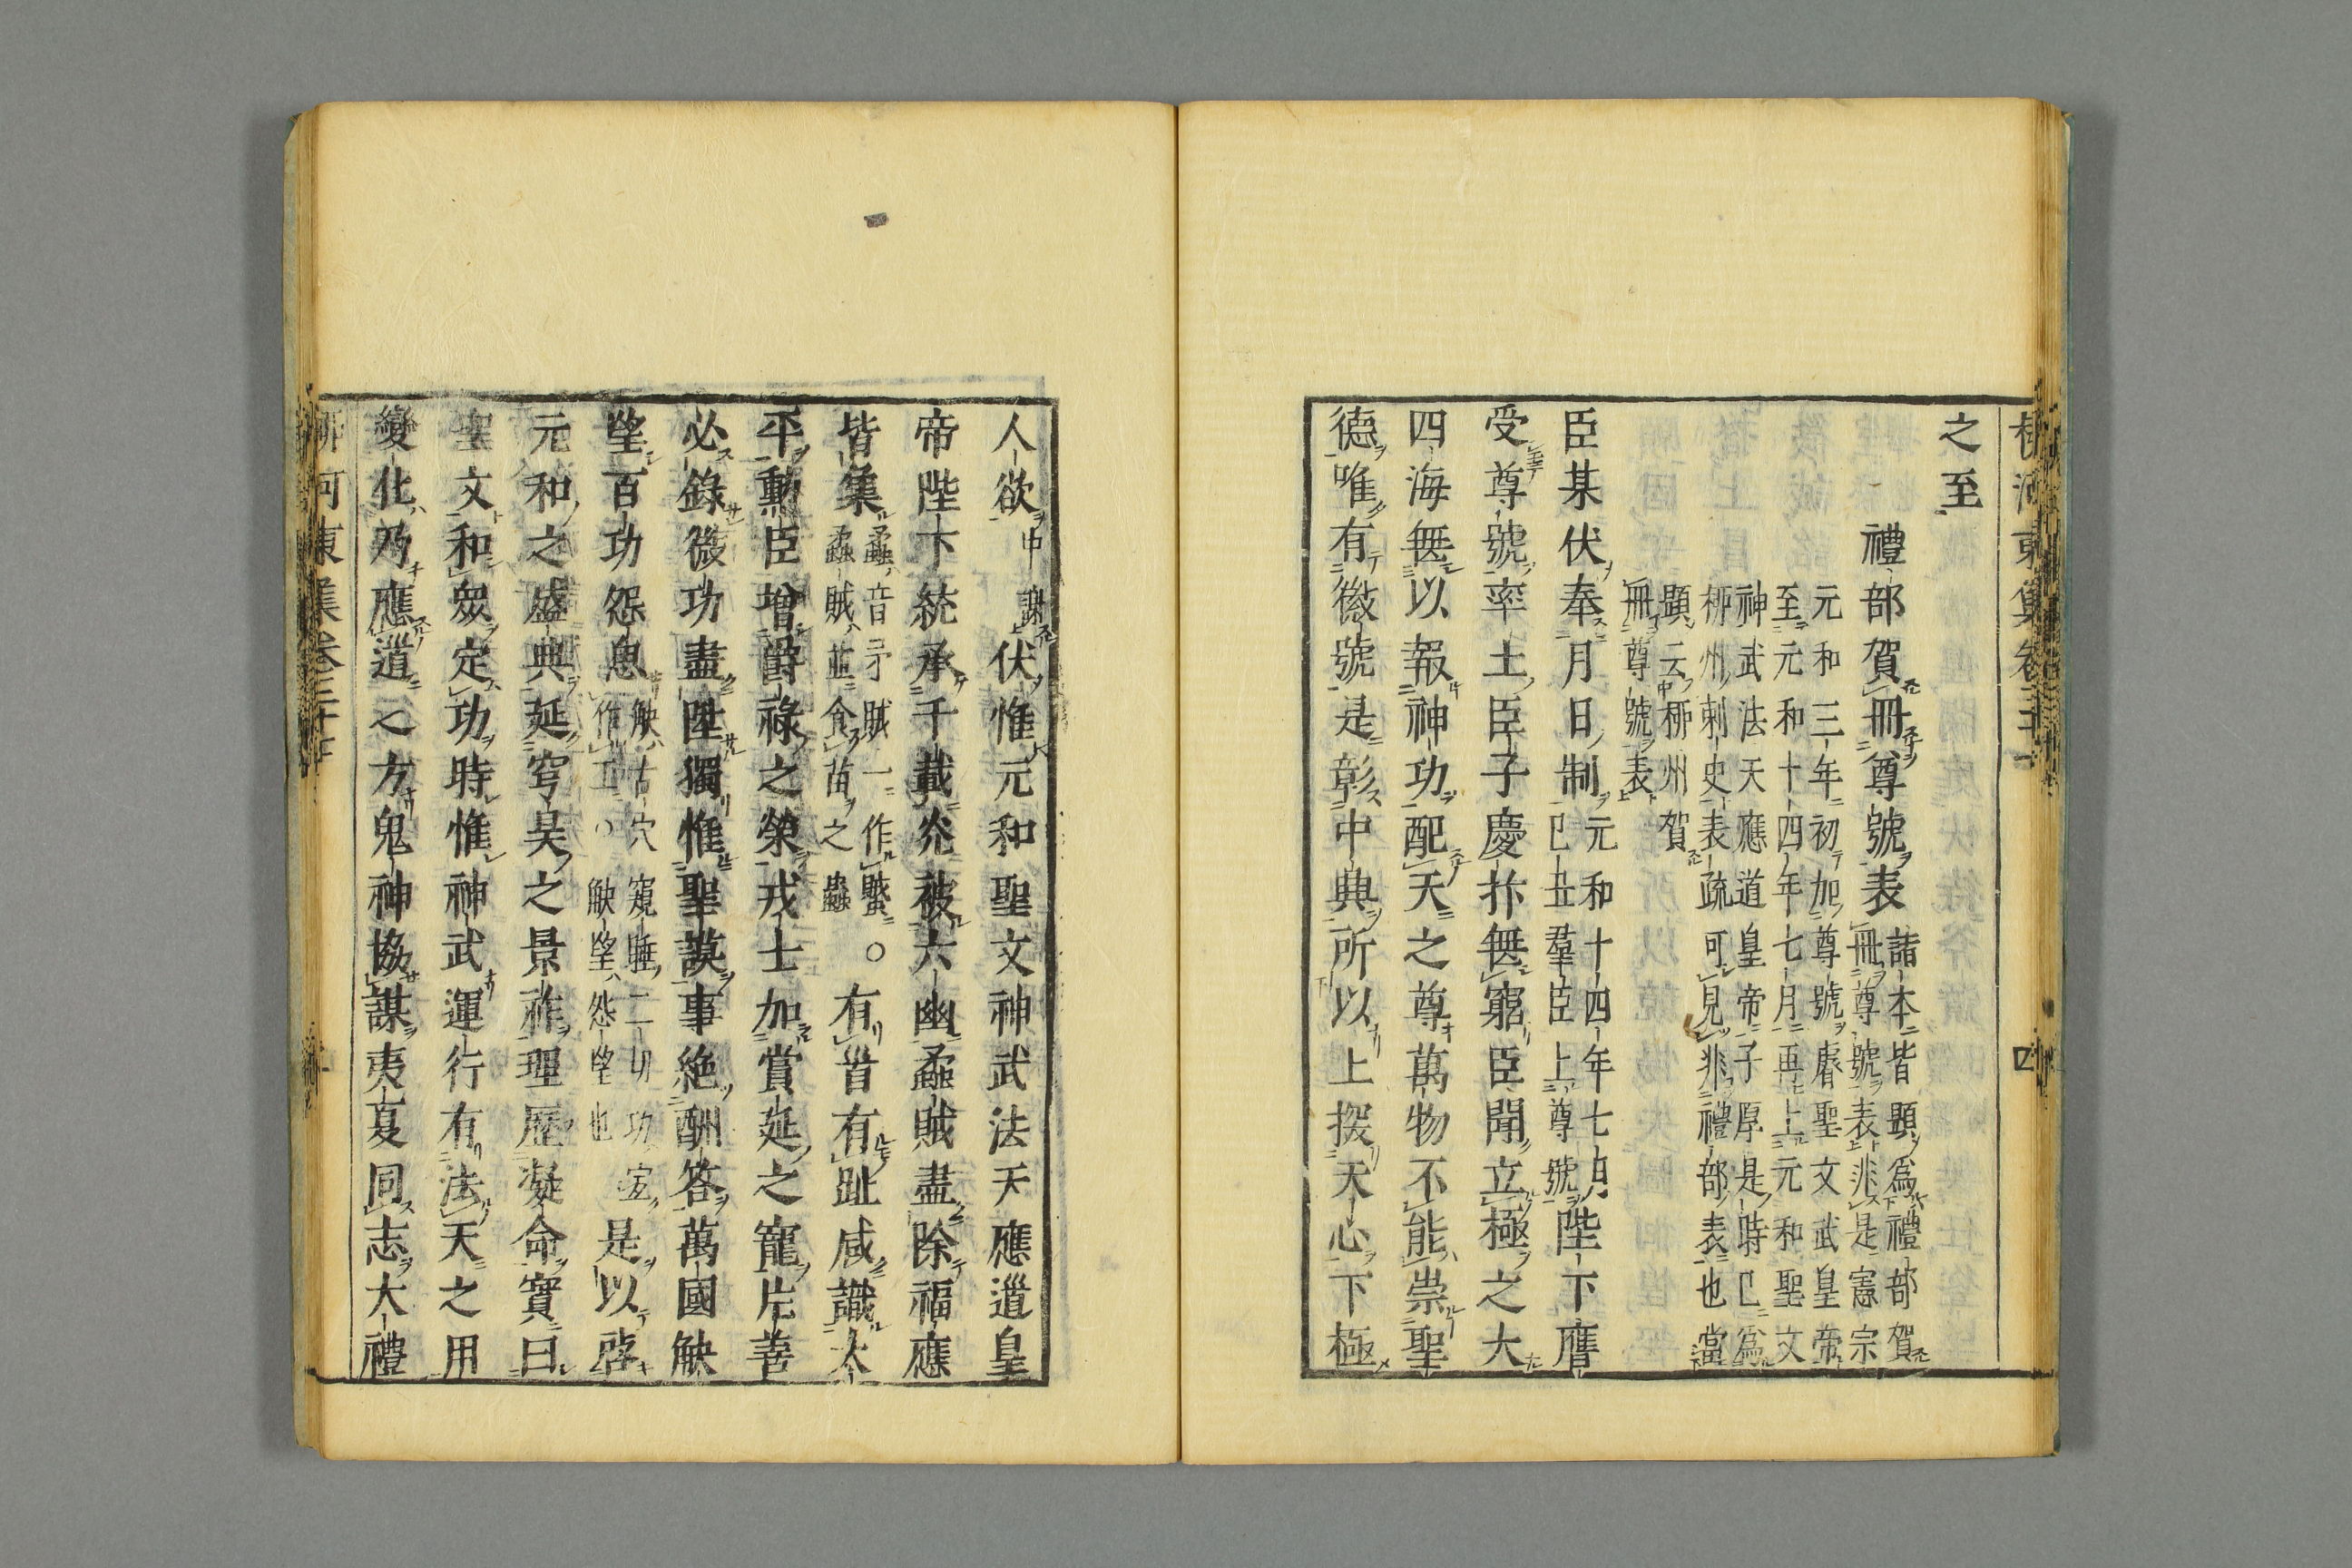 之至
禮部賀冊尊號表
諸本皆顯爲禮部賀
冊尊號表非是憲宗
元和三年初加尊號睿聖文武皇帝
至元和十四年七月再上元和聖文
神武法天應道皇帝子厚是時已爲
柳州刺史表疏可見非禮部表也當
顯云柳州賀
冊尊號表
臣某伏奉月日制
元和十四年七月
己丑羣臣上尊號
陛下膺
受尊號率土臣子慶抃無窮臣聞立極之大
四海無以報神功配天之尊萬物不能崇聖
德唯有徽號是彰中典所以上探天心下極
人欲中謝伏惟元和聖文神武法天應道皇
帝陛下統承千載光被六幽蟊賊盡除福應
皆集
蟊音矛賊一作蠈○
蟊賊並食苗之蟲
有首有趾咸識太
平勳臣增爵祿之榮戎士加賞延之寵片善
必錄微功盡陞獨惟聖謨事絶酬答萬國觖
望百功怨息
觖古穴窺睡二切功宜
作工○觖望怨望也
是以啓
元和之盛典延穹昊之景祚理歷凝命實曰
聖文和衆定功時惟神武運行有法天之用
變化乃應道之方鬼神協謀夷夏同志大禮
河東集卷三十七